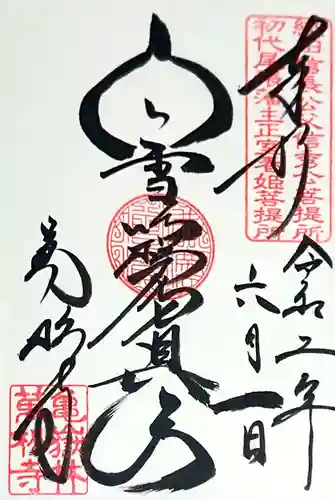 織田信長公父信秀公菩提所
初代尾張藩主正室春姫菩提所
奉拝
令和二年
六月一日
白雪
眞天
萬松寺
亀嶽林
萬松寺